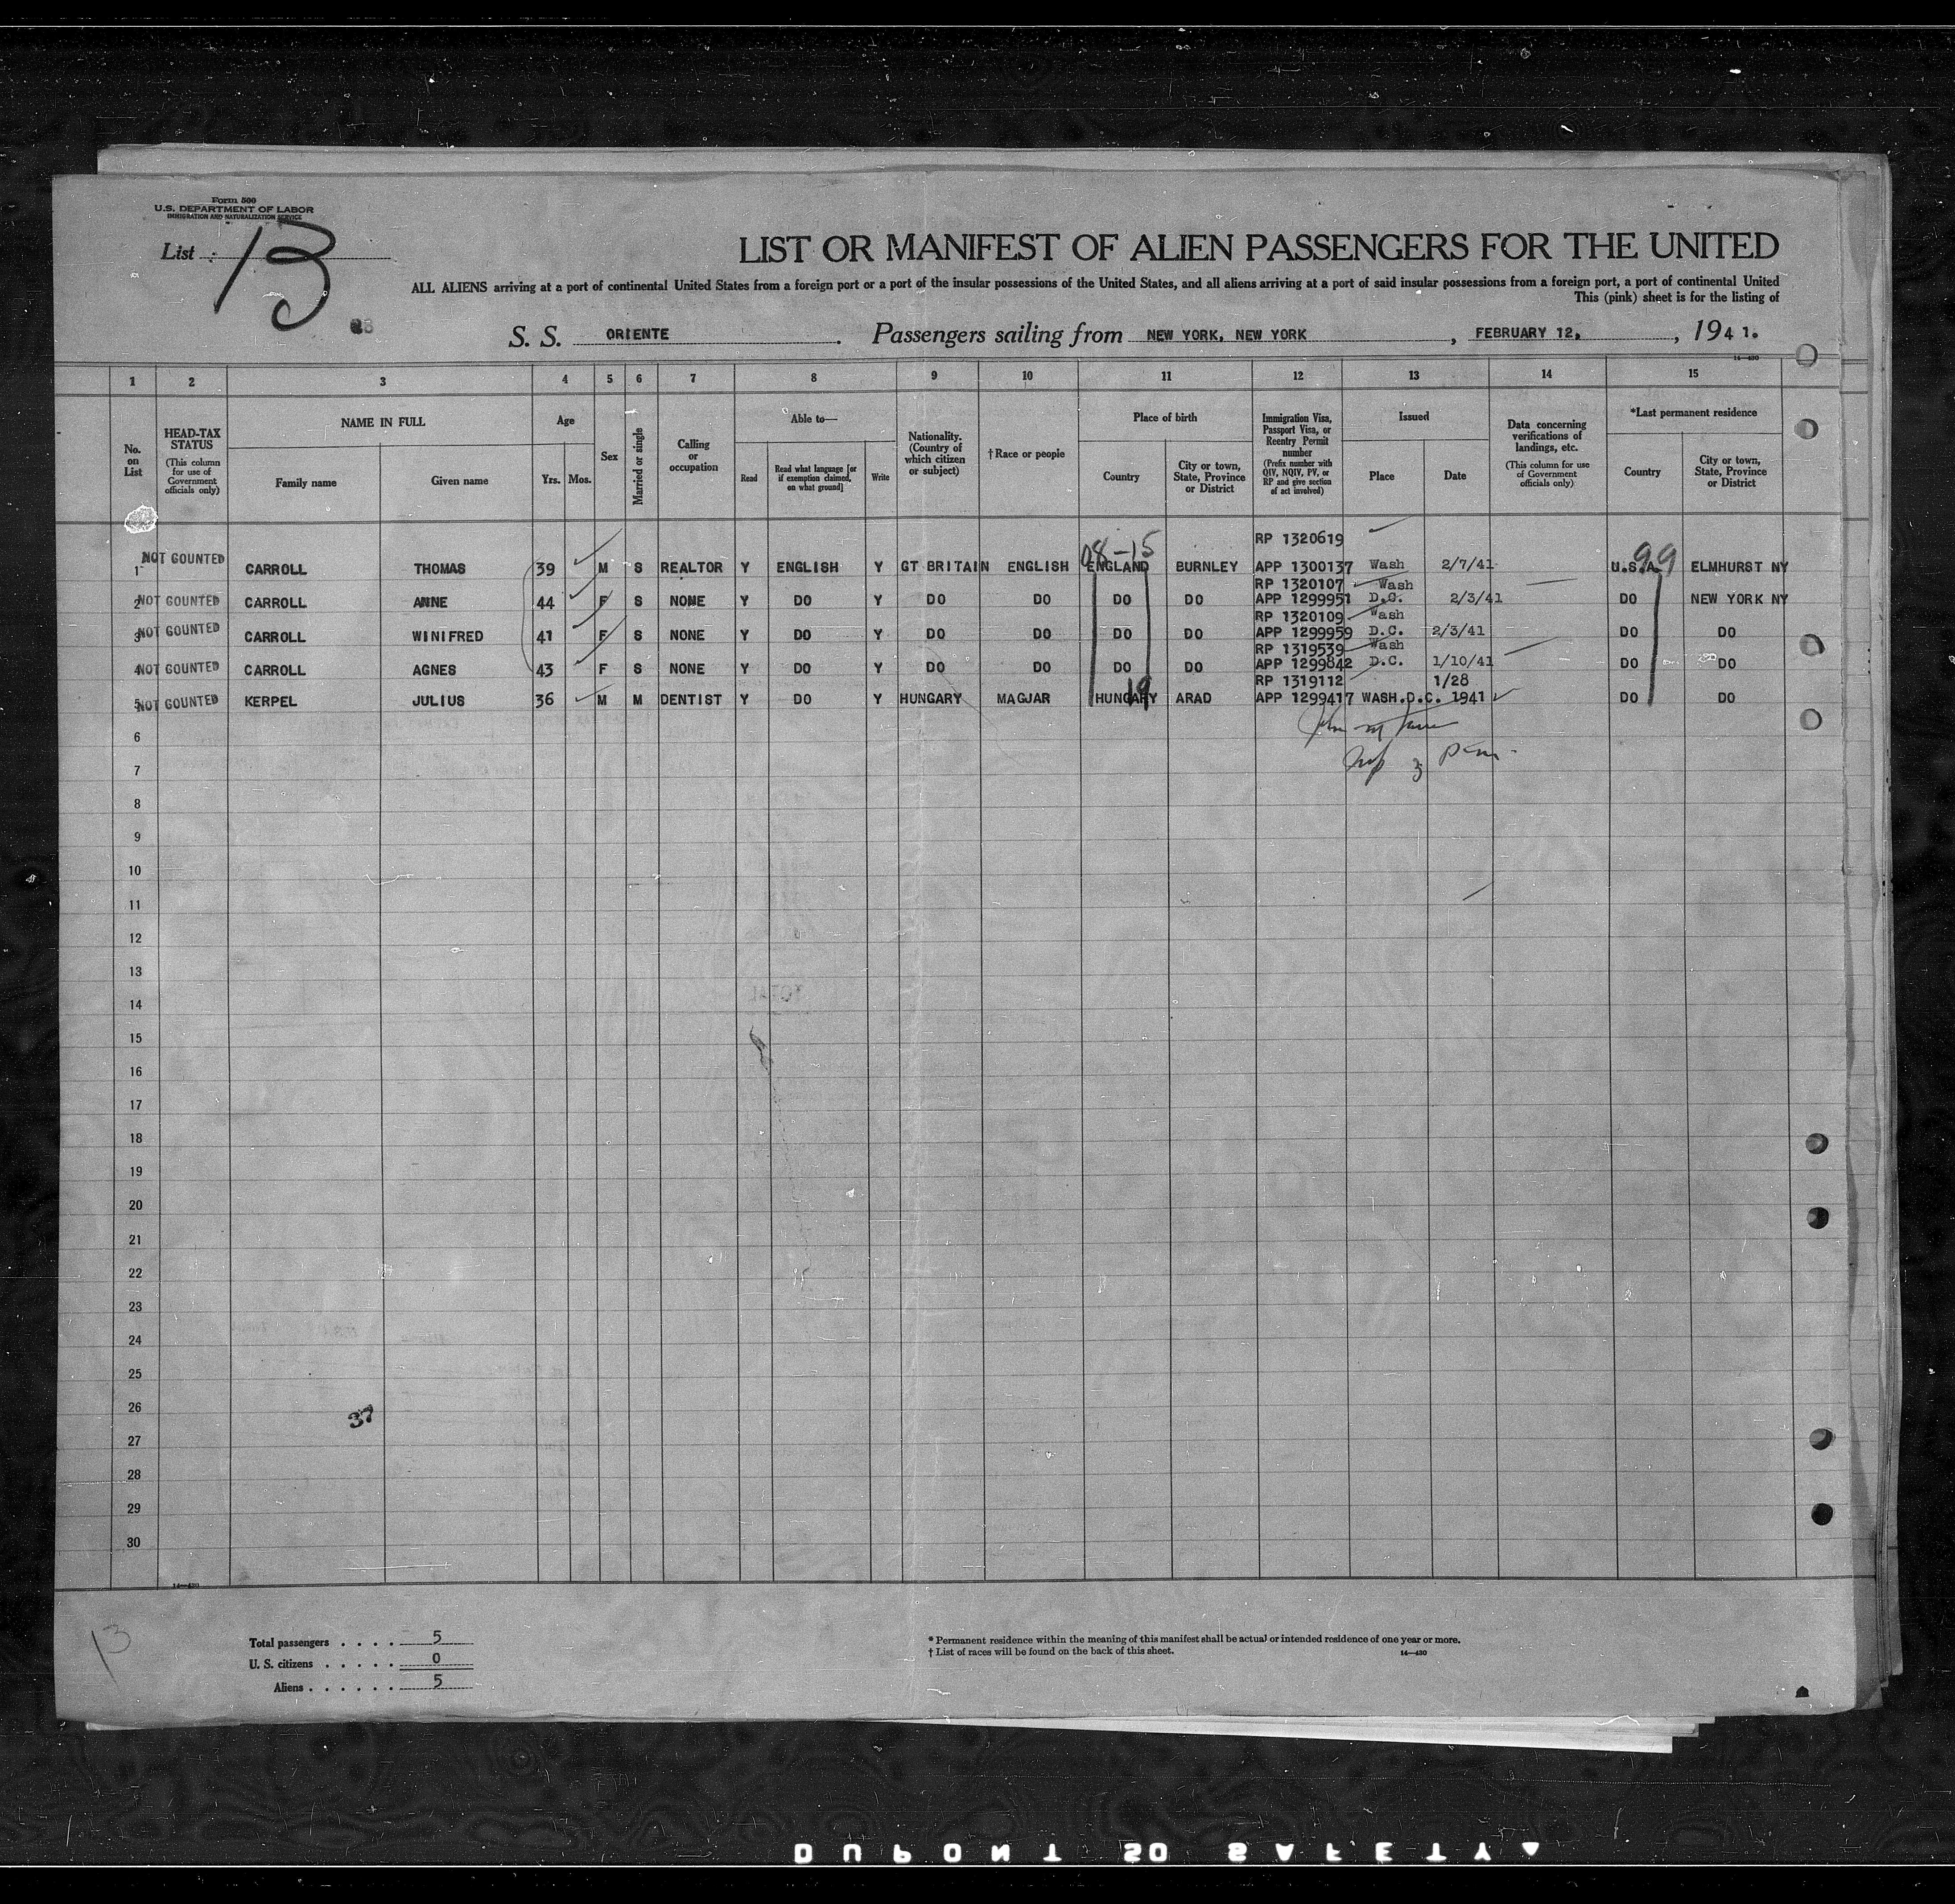 Form 500
U.S. DEPARTMENT OF LABOR
IMMIGRATION AND NATURALIZATION SERVICE
List 13
LIST OR MANIFEST OF ALIEN PASSENGERS FOR THE UNITED
ALL ALIENS arriving at a port of continental United States from a foreign port or a port of the insular possessions of the United States, and all aliens arriving at a port of said insular possessions from a foreign port, a port of continental United
This (pink) sheet is for the listing of
S. S. ORIENTE. Passengers sailing from NEW YORK, NEW YORK, FEBRUARY 12, , 1941.
14—430
1 2 3 4 5 6 7 8 9 10 11 12 13 14 15
No. on List
HEAD-TAX STATUS (This column for use of Government officials only)
NAME IN FULL
Family name Given name
Age
Yrs. Mos.
Sex
Married or single
Calling or occupation
Able to—
Read
Read what language [or if exemption claimed, on what ground]
Write
Nationality. (Country of which citizen or subject)
†Race or people
Place of birth
Country
City or town, State, Province or District
Immigration Visa, Passport Visa, or Reentry Permit number (Prefix number with QIV, NQIV, PV, or RP and give section of act involved)
Issued
Place Date
Data concerning verifications of landings, etc. (This column for use of Government officials only)
*Last permanent residence
Country
City or town, State, Province or District
08-15 RP 1320619 99
1 NOT COUNTED CARROLL THOMAS 39 M S REALTOR Y ENGLISH Y GT BRITAIN ENGLISH ENGLAND BURNLEY APP 1300137 Wash 2/7/41 U.S.A. ELMHURST NY
RP 1320107 Wash
2 NOT COUNTED CARROLL ANNE 44 F S NONE Y DO Y DO DO DO DO APP 1299951 D.C. 2/3/41 DO NEW YORK NY
RP 1320109 Wash
3 NOT COUNTED CARROLL WINIFRED 41 F S NONE Y DO Y DO DO DO DO APP 1299959 D.C. 2/3/41 DO DO
RP 1319539 Wash
4 NOT COUNTED CARROLL AGNES 43 F S NONE Y DO Y DO DO DO DO APP 1299842 D.C. 1/10/41 DO DO
19 RP 1319112 1/28
5 NOT COUNTED KERPEL JULIUS 36 M M DENTIST Y DO Y HUNGARY MAGJAR HUNGARY ARAD APP 1299417 WASH.D.C. 1941 DO DO
6
7
8
9
10
11
12
13
14
15
16
17
18
19
20
21
22
23
24
25
26
37
27
28
29
30
14—430
13
Total passengers . . . . 5
U. S. citizens . . . . . 0
Aliens . . . . . . 5
* Permanent residence within the meaning of this manifest shall be actual or intended residence of one year or more.
† List of races will be found on the back of this sheet.
14—430
DUPONT 50 SAFETY